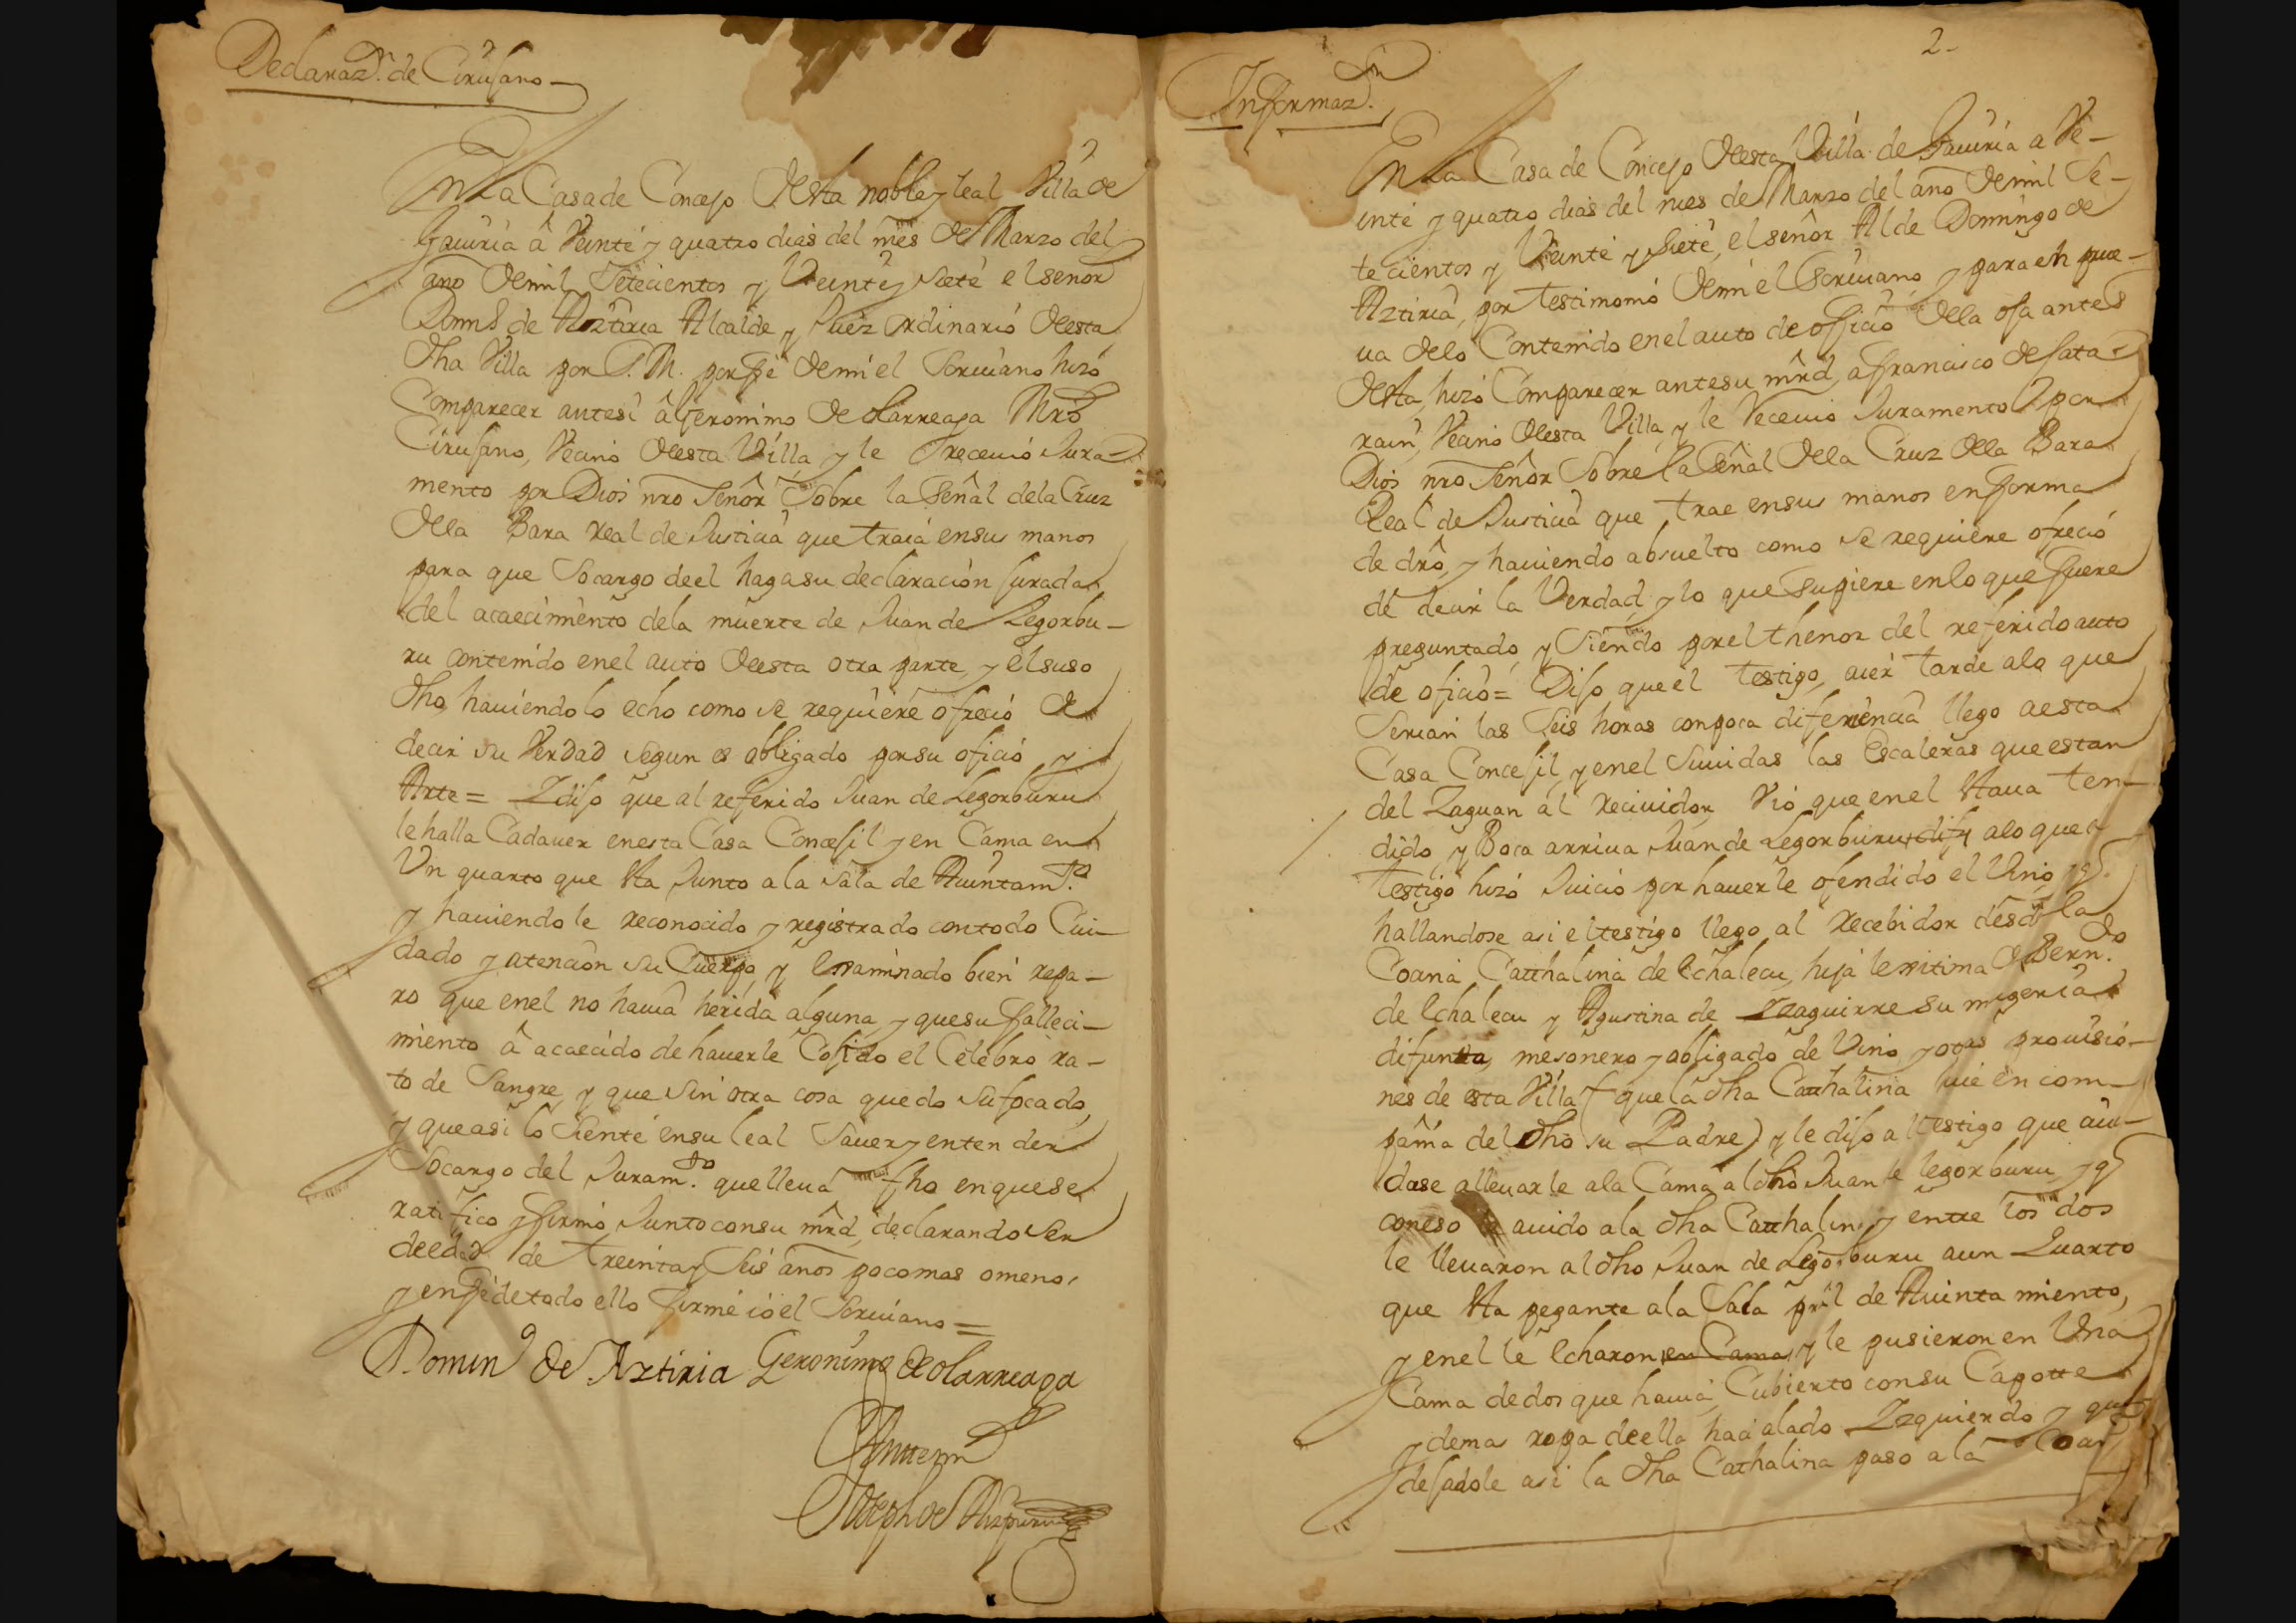 Declaraz.n de Cirujano
En La Casa de Concejo desta noble y leal Villa de
Gauiria â Veinte y quatro dias del mes de Marzo del
año demil Setecientos y Veinte y siete el señor
Domg.o de Aztiria Alcalde y Juez ordinario desta
dha Villa por S. M. por fe demi el Scriuano hizo
Comparecer antesi â Geronimo de olarreaga Mro
Cirujano, Vecino desta Villa y le Receuio Jura-
mento por Dios nro Señor Sobre la Señal dela Cruz
della Bara real de Justicia que traia ensus manos
para que Socargo deel haga su declaracion jurada
del acaecimiento dela muerte de Juan de Legorbu-
ru contenido enel auto desta otra parte, y el suso
dho, hauiendolo echo como se requiere ofrecio de
decir su Verdad segun es obligado por su oficio y
Arte = Y dijo que al referido Juan de Legorburu
le halla Cadauer enesta Casa Concejil y en Cama en
Vn quarto que sta Junto a la Sala de Aiuntam.to
y hauiendole reconocido y registrado contodo Cui-
dado y atencion su Cuerpo, y Examinado bien repa-
ro que enel no hauia herida alguna, y quesu falleci-
miento â acaecido de hauerle Cojido el Celebro ra-
to de Sangre, y que sin otra cosa quedo sufocado,
y queasi lo Siente ensu leal Sauer y entender
Socargo del Juram.to que lleua fho enquese
ratifico y firmo Junto consu mrd, declarando ser
deedad de treinta y Seis años poco mas omenos
y enfe detodo ello firme io el Scriuano =
Doming.o de Aztiria Geronimo de olarreaga
Antemi
Joseph de Aizpuru
2-
Informaz.on
En La Casa de Concejo desta Villa de Gauiria a Ve-
inte y quatro dias del mes de Marzo del año demil Se-
tecientos y Veinte y Siete, el señor Alde Domingo de
Aztiria, por testimonio demi el Scriuano, y para en prue-
ua delo Contenido enel auto de officio della oja antes
desta, hizo Comparecer antesu mrd, a francisco de Sata-
rain, Vecino desta Villa, y le Receuio Juramento por
Dios nro Señor Sobre la Señal della Cruz della Bara
Real de Justicia que trae ensus manos enforma
de dro, y hauiendo absuelto como se requiere ofrecio
de decir la Verdad, y lo que supiere enlo que fuere
preguntado, y Siendo por el thenor del referido auto
de oficio = Dijo que el testigo, aier tarde alo que
Serian las Seis horas conpoca diferencia llego aesta
Casa Concejil, y enel Suuidas las Escaleras que estan
del Zaguan al Reciuidor Vio que enel Staua ten-
dido, y Boca arriua Juan de Legorburu, dijo, alo que el
testigo hizo Juicio por hauerle ofendido el Vino, y q.e
hallandose asi el testigo llego al Recebidor desde la
Cocina Catthalina de Echalecu, hija lexitima de Bern.do
de Echalecu y Agustina de Yzaguirre su muger ia
difunta, mesonero y obligado de Vino y otras prouisio-
nes de esta Villa (que la dha Catthalina viue en com-
pañia del dho su Padre) y le dijo al testigo que aiu-
dase alleuarle ala Cama al dho Juan de legorburu, y q.e
coneso auido ala dha Catthalina, y entre los dos
le lleuaron al dho Juan de Legorburu aun Quarto
que sta pegante ala Sala pral de Aiuntamiento,
y enel le Echaron en Cama, y le pusieron en Vna
Cama dedos que hauia, Cubierto consu Capotte
y demas ropa deella hacia lado Yzquierdo, y que
dejadole asi la dha Cathalina paso a la Coci